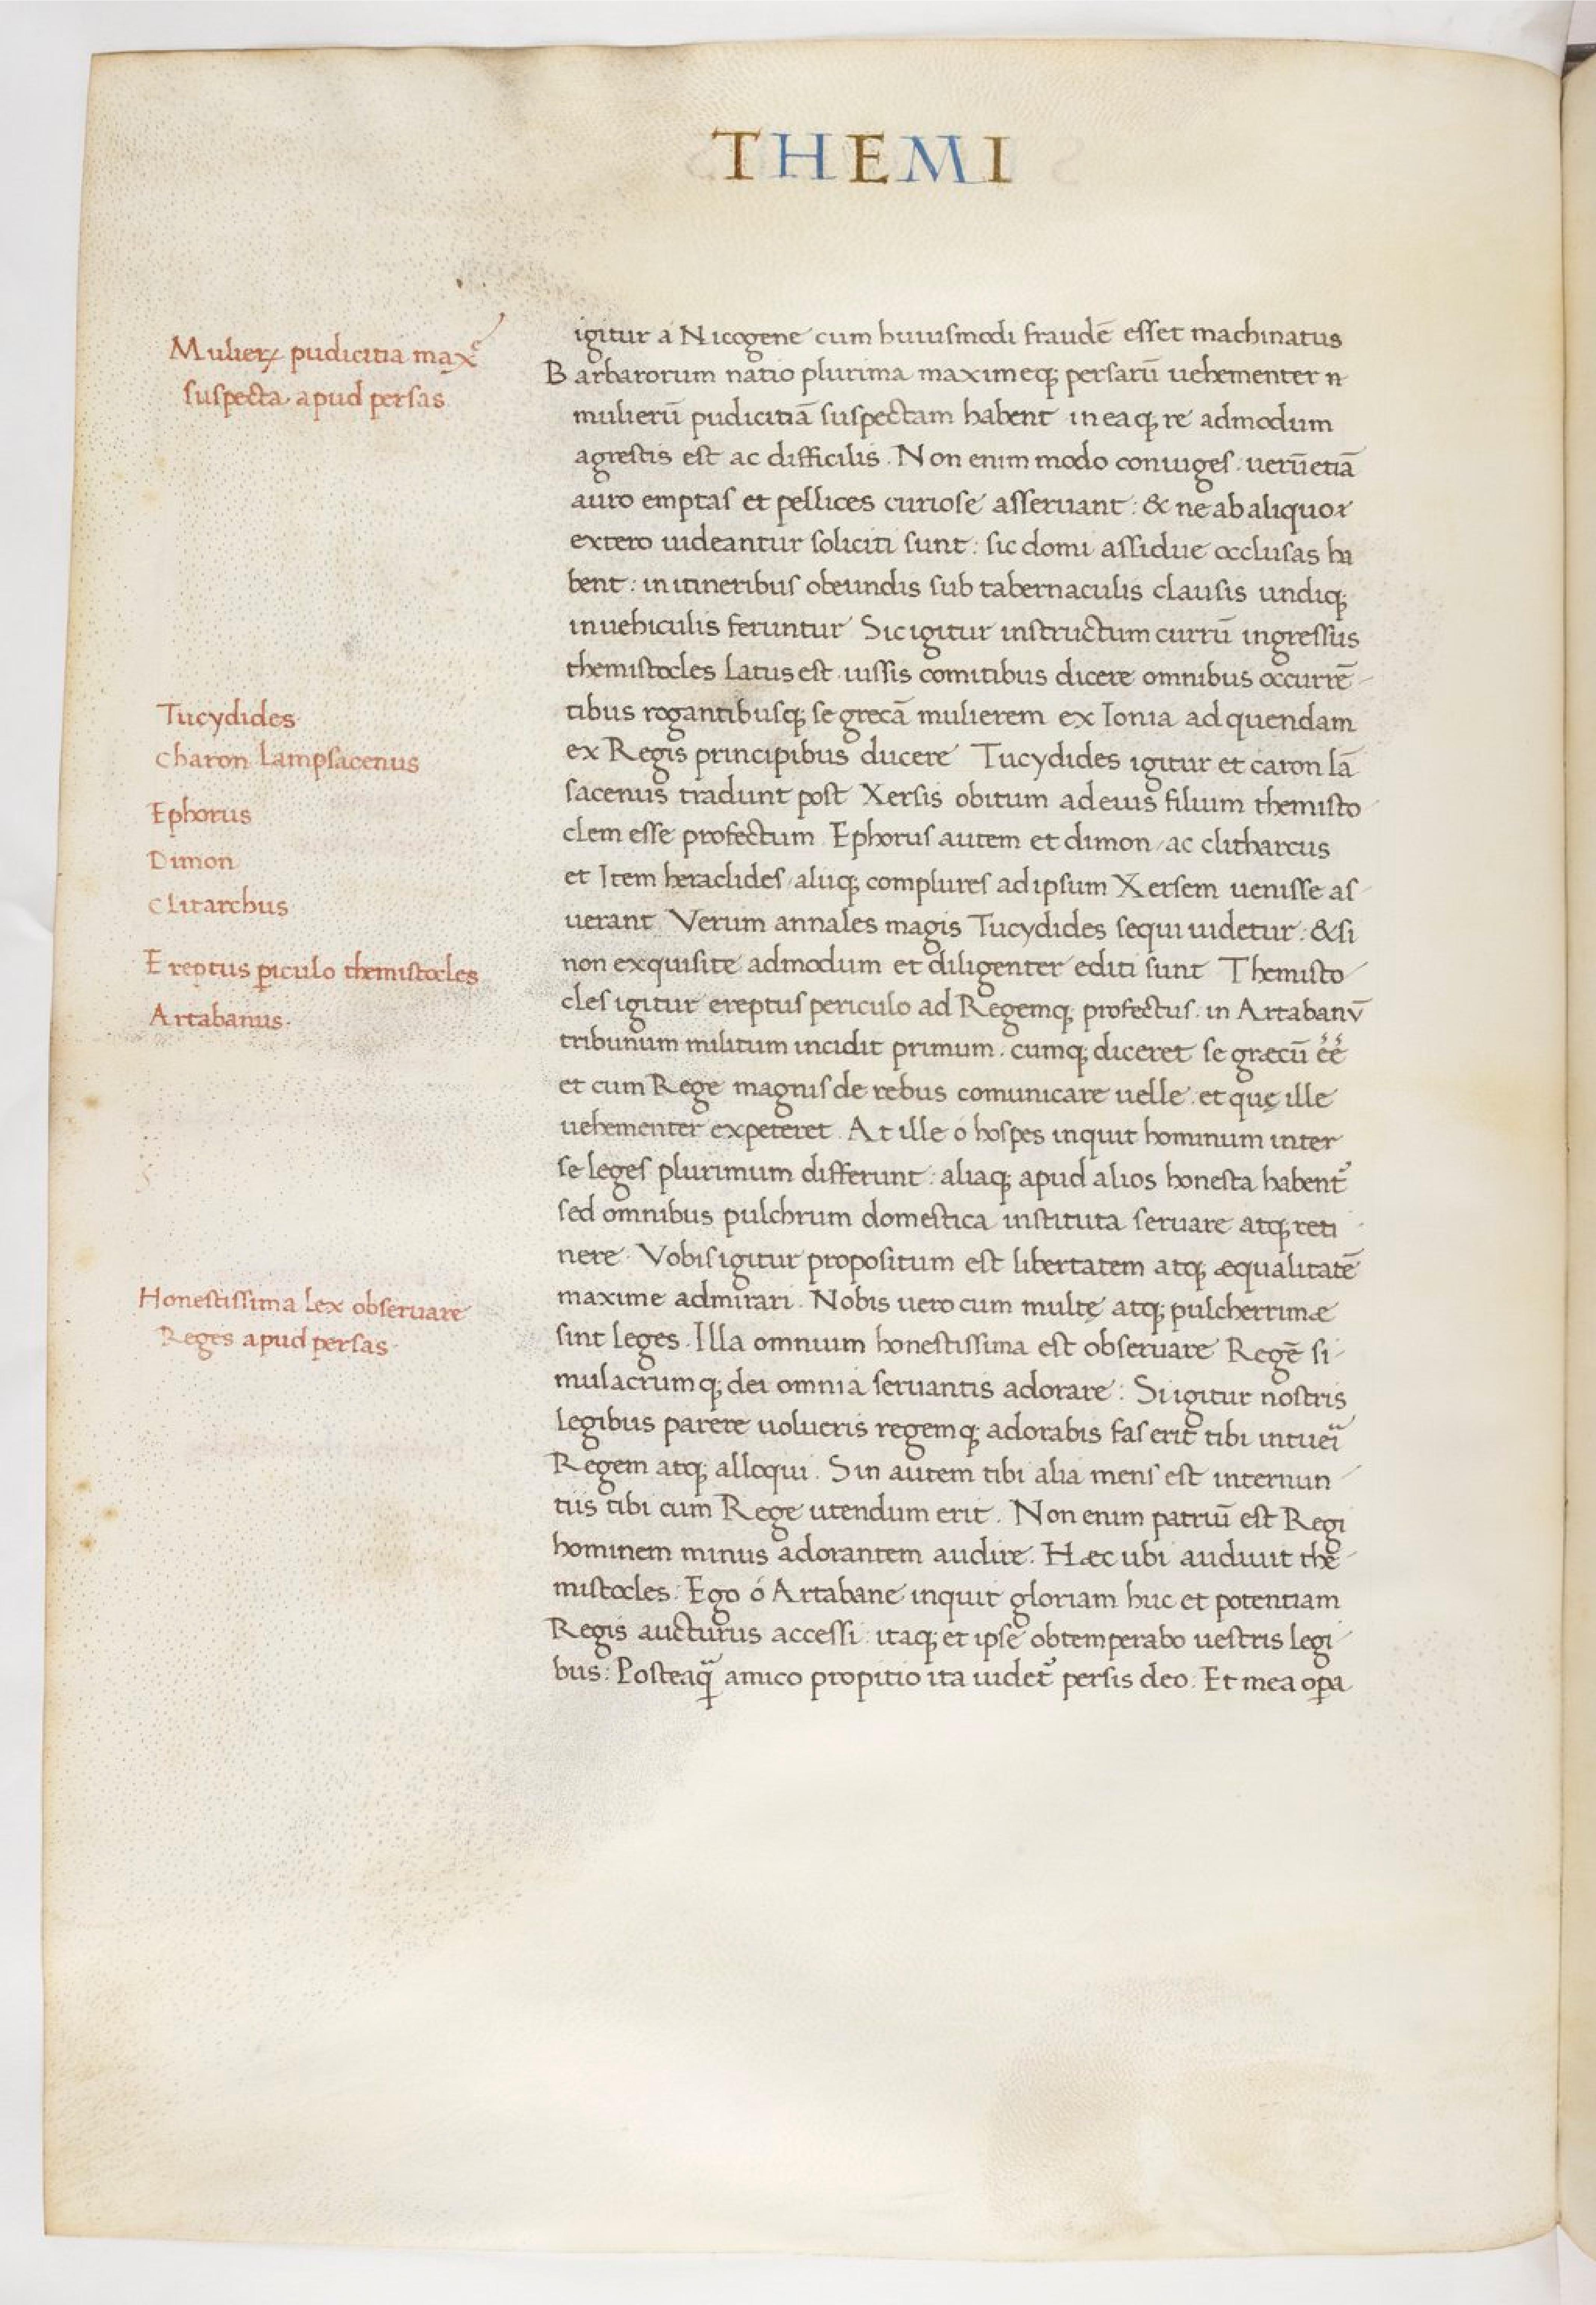 THEMI
Mulieꝝ pudicitia maxᵉ
suspecta apud persas
Tucydides
charon Lampsacenus
Ephorus
Dimon
clitarchus
Ereptus ꝑiculo themistocles
Artabanus.
Honestissima Lex obseruare
Reges apud persas.
igitur a Nicogene cum huiusmodi fraudē esset machinatus
Barbarorum natio plurima maximeqꝫ persarū uehementer
mulierū pudicitiā suspectam habent in eaqꝫ re admodum
agrestis est ac difficilis. Non enim modo coniuges: uerūetiā
auro emptas et pellices curiose asseruant: & ne ab aliquo
extero uideantur soliciti sunt: sic domi assidue occlusas ha
bent: in itineribus obeundis sub tabernaculis clausis undiqꝫ
in uehiculis feruntur Sic igitur instructum currū ingressus
themistocles Latus est. iussis comitibus dicere omnibus occurrē
tibus rogantibusqꝫ se grecā mulierem ex Ionia ad quendam
ex Regis principibus ducere Tucydides igitur et caron lā
sacenus tradunt post Xersis obitum ad eius filium themisto
clem esse profectum. Ephorus autem et dimon, ac clitharcus
et Item heraclides, aliiqꝫ complures ad ipsum Xersem uenisse as
uerant Verum annales magis Tucydides sequi uidetur: & si
non exquisite admodum et diligenter editi sunt Themisto
cles igitur ereptus periculo ad Regemqꝫ profectus. in Artabanū
tribunum militum incidit primum. cumqꝫ diceret se græcū ēē
et cum Rege magnis de rebus comunicare uelle. et quę ille
uehementer expeteret. At ille o hospes inquit hominum inter
se leges plurimum differunt: aliaqꝫ apud alios honesta habent᷑
sed omnibus pulchrum domestica instituta seruare atqꝫ reti
nere. Vobis igitur propositum est libertatem atqꝫ æqualitatē
maxime admirari. Nobis uero cum multę atqꝫ pulcherrimæ
sint leges. Illa omnium honestissima est obseruare Regē si
mulacrumqꝫ dei omnia seruantis adorare: Si igitur nostris
legibus parere uolueris regemqꝫ adorabis fas erit tibi intueri
Regem atqꝫ alloqui. Sin autem tibi alia mens est internun
tiis tibi cum Rege utendum erit. Non enim patriū est Regi
hominem minus adorantem audire. Hæc ubi audiuit thē
mistocles: Ego ó Artabane inquit gloriam huc et potentiam
Regis aucturus accessi: itaqꝫ et ipse obtemperabo uestris legi
bus: Posteaꝙ̄ amico propitio ita uidet᷑ persis deo. Et mea oꝑa